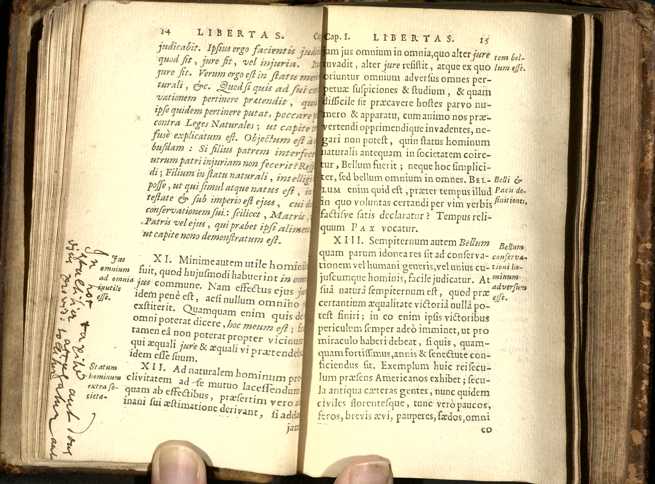 14 LIBERTAS.
judicabit. Ipsius ergo facientis judicio
quod fit, jure fit, vel injuria.
jure fit. Verum ergo est in statu
turali, &c. Quod si quis ad sui
vationem pertinere pretendit,
ipse quidem pertinere putat, peccare
contra Leges Naturales; ut capite
fusè explicatum est. Objectum est à
busdam: Si filius patrem interfecerit
utrum patri injuriam non fecerit?
di; Filium in statu naturali,
posse, ut qui simul atque natus est, in
testate & sub imperio est ejus, cui
conservationem sui: scilicet, Matris,
Patris vel ejus, qui præbet ipsi
ut capite nono demonstratum est.
Jus
omnium
ad omnia
inutile
esse.
XI. Minimè autem utile
fuit, quod hujusmodi habuerint in
jus commune. Nam effectus ejus
idem penè est, ac si nullum omnino
exstiterit. Quamquam enim quis de
omni poterat dicere, hoc meum est;
tamen eâ non poterat propter
qui æquali jure & æquali vi
idem esse suum.
Statum
hominum
extra so-
cieta-
XII. Ad naturalem hominum pro-
clivitatem ad se mutuo lacessendum,
quam ab effectibus, præsertim vero
inani sui æstimatione derivant, si addas
jam
Cap. I. LIBERTAS. 15
jam jus omnium in omnia, quo alter jure
invadit, alter jure resistit, atque ex quo
oriuntur omnium adversus omnes per-
petuæ suspiciones & studium, & quam
difficile sit præcavere hostes parvo nu-
mero & apparatu, cum animo nos præ-
vertendi opprimendique invadentes, ne-
gari non potest, quin status hominum
naturalis antequam in societatem coire-
tur, Bellum fuerit; neque hoc simplici-
ter, sed bellum omnium in omnes. BEL-
LUM enim quid est, præter tempus illud
in quo voluntas certandi per vim verbis
factisve satis declaratur? Tempus reli-
quum PAX vocatur.
tem bel-
lum esse.
Belli &
Pacis de-
finitiones.
XIII. Sempiternum autem Bellum
quam parum idonea res sit ad conserva-
tionem vel humani generis, vel unius cu-
juscumque hominis, facile judicatur. At
suâ naturâ sempiternum est, quod præ
certantium æqualitate victoriâ nullâ po-
test finiri; in eo enim ipsis victoribus
periculum semper adeò imminet, ut pro
miraculo haberi debeat, si quis, quam-
quam fortissimus, annis & senectute con-
ficiendus sit. Exemplum hujc rei secu-
lum præsens Americanos exhibet; secu-
la antiqua cæteras gentes, nunc quidem
civiles florentesque, tunc verò paucos,
feros, brevis ævi, pauperes, fœdos, omni
co
Bellum
conserva-
tioni ho-
minum
adversum
esse.